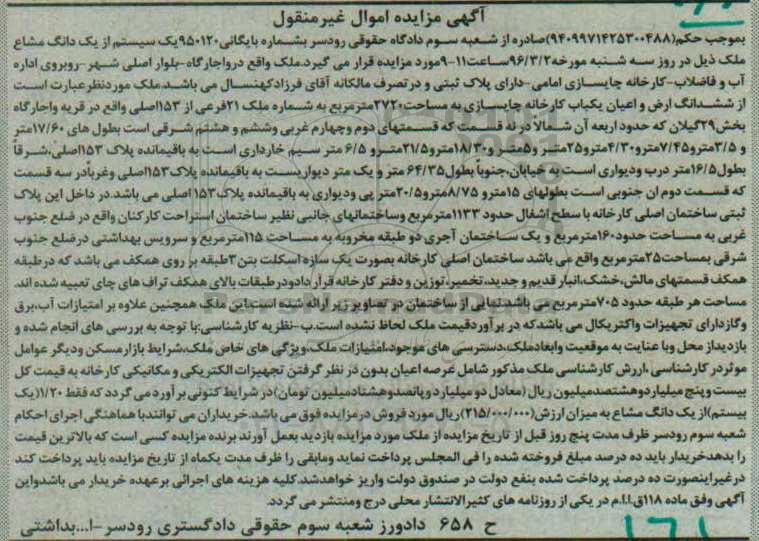 آگهی مزایده اموال غیرمنقول
بموجب حکم(۹۴۰۹۹۷۱۴۲۵۳۰۰۴۸۸)صادره از شعبه سوم دادگاه حقوقی رودسر بشماره بایگانی۹۵۰۱۲۰یک سیستم از یک دانگ مشاع
ملک ذیل در روز سه شنبه مورخه۹۶/۳/۲ساعت۱۱-۹مورد مزایده قرار می گیرد.ملک واقع درواجارگاه-بلوار اصلی شهر-روبروی اداره
آب و فاضلاب-کارخانه چایسازی امامی-دارای پلاک ثبتی و درتصرف مالکانه آقای فرزادکهنسال می باشد.ملک موردنظرعبارت است
از ششدانگ ارض و اعیان یکباب کارخانه چایسازی به مساحت۲۷۲۰مترمربع به شماره ملک ۲۱فرعی از ۱۵۳اصلی واقع در قریه واجارگاه
بخش۲۹گیلان که حدود اربعه آن شمالاً در نه قسمت که قسمتهای دوم وچهارم غربی وششم و هشتم شرقی است بطول های ۱۷/۶۰متر
و ۳/۵مترو۷/۴۵مترو۴/۳۰مترو۲۵متر و۵متر و۱۸/۳۰مترو۲۱/۵مترو ۶/۵ متر سیم خارداری است به باقیمانده پلاک ۱۵۳اصلی،شرقاً
بطول۱۶/۵متر درب ودیواری است به خیابان،جنوباً بطول۶۴/۳۵ متر و یک متر دیواریست به باقیمانده پلاک۱۵۳اصلی وغرباًدر سه قسمت
که قسمت دوم ان جنوبی است بطولهای ۱۵مترو ۸/۷۵مترو۲۰/۵متر پی ودیواری به باقیمانده پلاک۱۵۳ اصلی می باشد.در داخل این پلاک
ثبتی ساختمان اصلی کارخانه با سطح اشغال حدود ۱۱۳۳مترمربع وساختمانهای جانبی نظیر ساختمان استراحت کارکنان واقع در ضلع جنوب
غربی به مساحت حدود۱۶۰مترمربع و یک ساختمان آجری دو طبقه مخروبه به مساحت ۱۱۵مترمربع و سرویس بهداشتی درضلع جنوب
شرقی بمساحت۲۵مترمربع واقع می باشد ساختمان اصلی کارخانه بصورت یک سازه اسکلت بتن۳طبقه بر روی همکف می باشد که درطبقه
همکف قسمتهای مالش،خشک،انبار قدیم و جدید،تخمیر،توزین و دفتر کارخانه قرار دادودرطبقات بالای همکف تراف های چای تعبیه شده اند.
مساحت هر طبقه حدود ۷۰۵مترمربع می باشد.نمایی از ساختمان در تصاویر زیر ارائه شده است.این ملک همچنین علاوه بر امتیازات آب،برق
وگازدارای تجهیزات واکتریکال می باشدکه در برآوردقیمت ملک لحاظ نشده است.ب-نظریه کارشناسی:با توجه به بررسی های انجام شده و
بازدیداز محل وبا عنایت به موقعیت وابعادملک،دسترسی های موجود،امتیازات ملک،ویژگی های خاص ملک،شرایط بازارمسکن ودیگر عوامل
موثردر کارشناسی ،ارزش کارشناسی ملک مذکور شامل عرصه اعیان بدون در نظر گرفتن تجهیزات الکتریکی و مکانیکی کارخانه به قیمت کل
بیست وپنج میلیاردوهشتصدمیلیون ریال (معادل دو میلیارد وپانصدوهشتادمیلیون تومان)در شرایط کنونی برآورد می گردد که فقط ۱/۲۰(یک
بیستم)از یک دانگ مشاع به میزان ارزش(۲۱۵/۰۰۰/۰۰۰)ریال مورد فروش درمزایده فوق می باشد.خریداران می توانندبا هماهنگی اجرای احکام
شعبه سوم رودسر ظرف مدت پنج روز قبل از تاریخ مزایده از ملک مورد مزایده بازدید بعمل آورند برنده مزایده کسی است که بالاترین قیمت
را بدهدخریدار باید ده درصد مبلغ فروخته شده را فی المجلس پرداخت نماید ومابقی را ظرف مدت یکماه از تاریخ مزایده باید پرداخت کند
درغیراینصورت ده درصد پرداخت شده بنفع دولت در صندوق دولت واریز خواهدشد.کلیه هزینه های اجرائی برعهده خریدار می باشدواین
آگهی وفق ماده ۱۱۸ق.ا.ا.م در یکی از روزنامه های کثیرالانتشار محلی درج ومنتشر می گردد.
ح ۶۵۸ دادورز شعبه سوم حقوقی دادگستری رودسر-ا...بداشتی